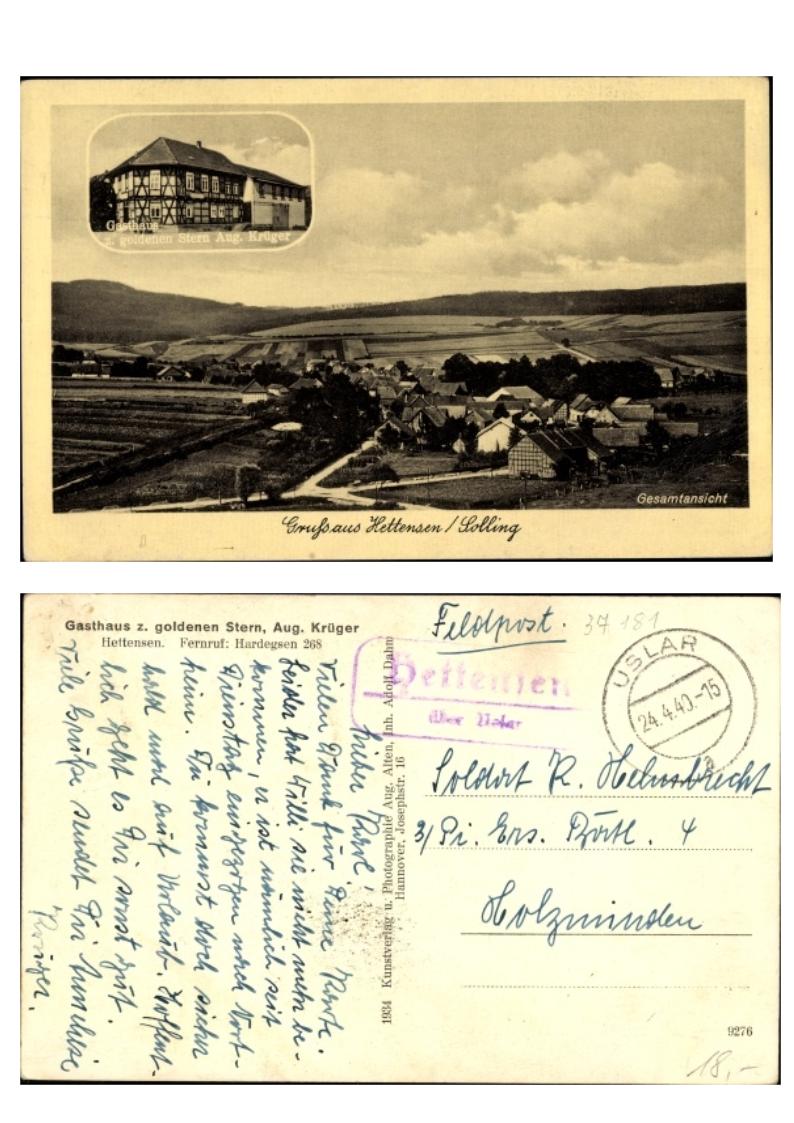 Gasthaus
z. goldenen Stern Aug. Krüger
Gesamtansicht
Gruß aus Hettensen / Solling
Gasthaus z. goldenen Stern, Aug. Krüger
Hettensen. Fernruf: Hardegsen 268
Feldpost.
37 181
Hettensen
über Uslar
USLAR
24.4.40.-15
a
Soldat K. Helmbrecht
3/Pi. Ers. Batl. 4
Holzminden
Lieber Karl!
Vielen Dank für Deine Karte.
Leider hat Willi sie nicht mehr be-
kommen, er ist nämlich seit
Dienstag eingezogen nach Nort-
heim. Du kommst doch sicher
bald mal auf Urlaub. Hoffent-
lich geht es Dir sonst gut.
Viele Grüße sendet Dir Anneliese
Krüger.
1934 Kunstverlag u. Photographie Aug. Alten, Inh. Adolf Dahm
Hannover, Josephstr. 16
9276
18,-